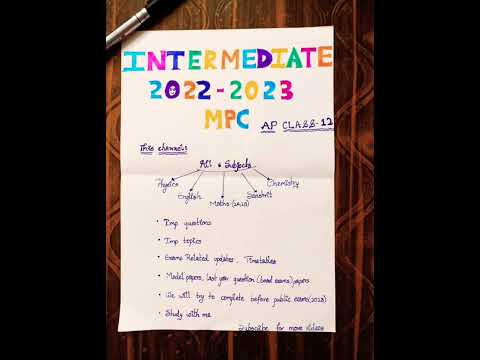 INTERMEDIATE
2022-2023
MPC
AP CLASS-12
This channel:
All 6 Subjects
Physics English Maths-(2A,2B) Sanskrit Chemistry
• Imp questions
• Imp topics
• Exams Related updates, Timetables
• Model papers, last year question (board exams) papers
• We will try to complete before public exams (2023)
• Study with me
Subscribe for more videos